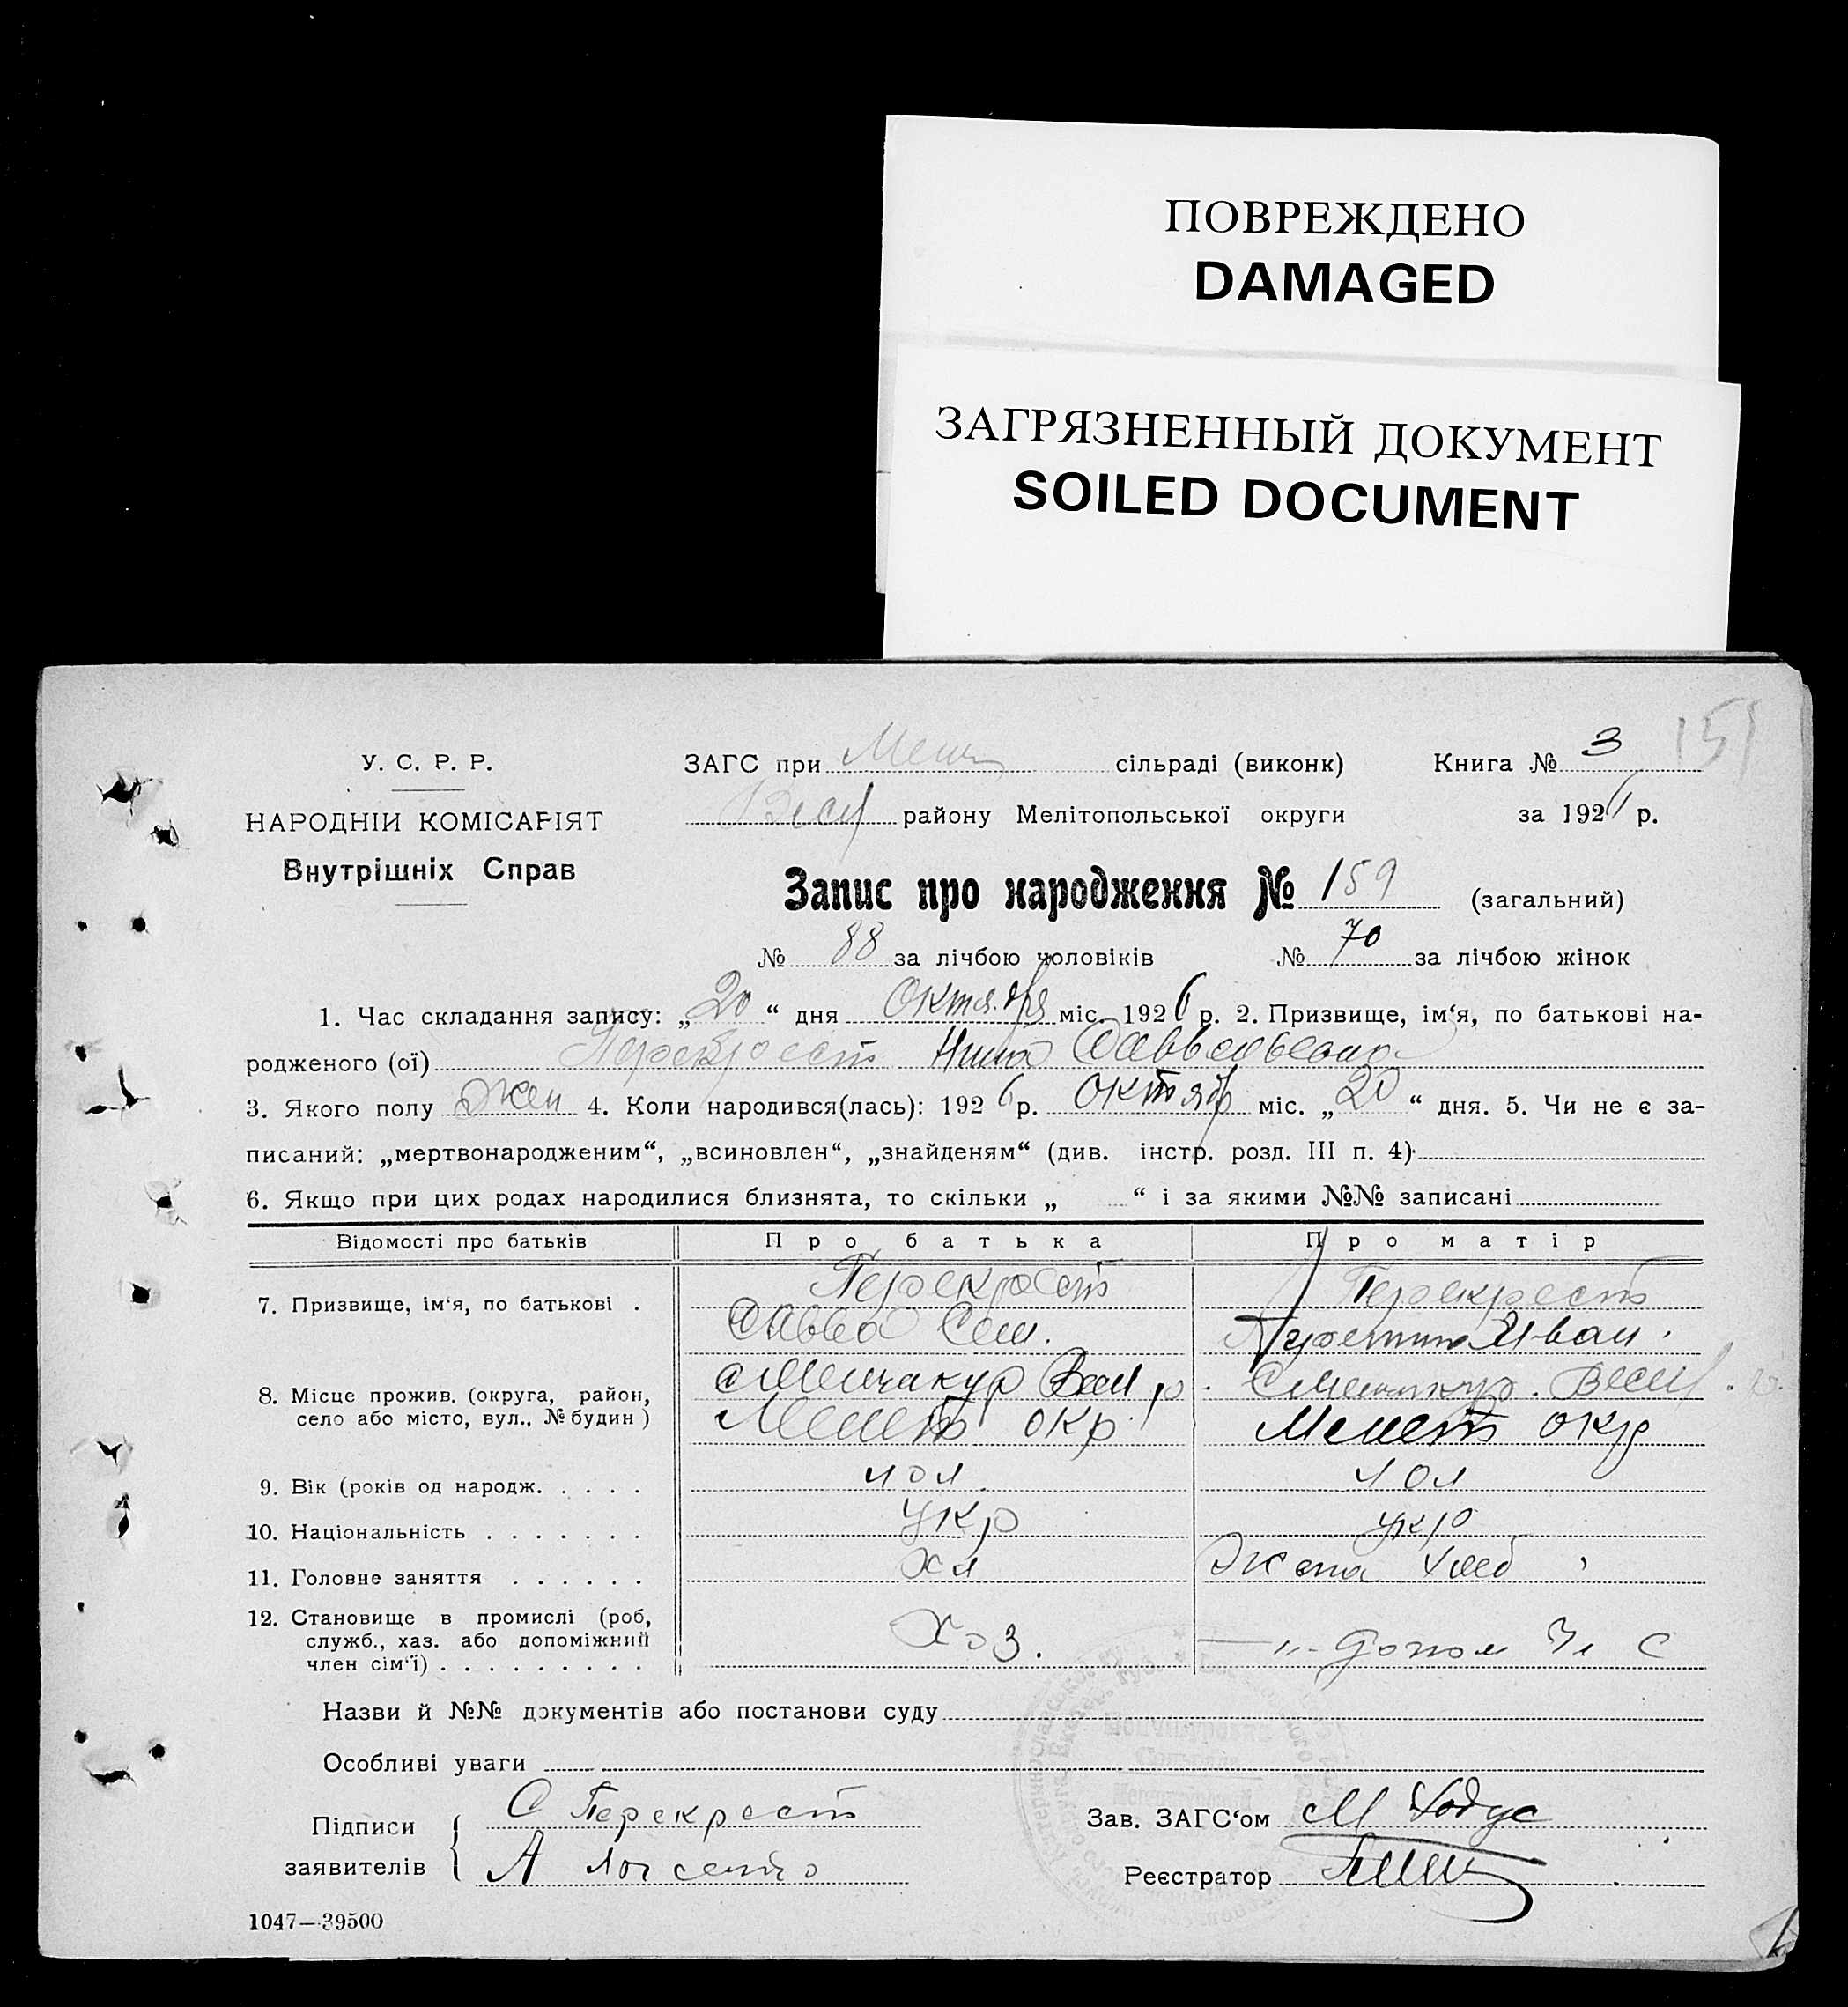 ПОВРЕЖДЕНО
DAMAGED
ЗАГРЯЗНЕННЫЙ ДОКУМЕНТ
SOILED DOCUMENT
151
У. С. Р. Р.
ЗАГС при сільраді (виконк) Книга № 3
НАРОДНІЙ КОМІСАРІЯТ
Весел району Мелітопольської округи за 1926 р.
Внутрішніх Справ
Запис про народження № 159 (загальний)
№ 88 за лічбою чоловіків № 70 за лічбою жінок
1. Час складання запису: „20“ дня Октября міс. 1926 р. 2. Призвище, ім‘я, по батькові на-
родженого (ої) Перекрест Нина Савельевна
3. Якого полу жен 4. Коли народився(лась): 1926 р. Октябр міс. „20“ дня. 5. Чи не є за-
писаний: „мертвонародженим“, „всиновлен“, „знайденям“ (див. інстр. розд. III п. 4)
6. Якщо при цих родах народилися близнята, то скільки „ “ і за якими №№ записані
Відомості про батьків Про батька Про матір
7. Призвище, ім‘я, по батькові . Перекрест Перекрест
Савва Сем. Иван.
8. Місце прожив. (округа, район, село або місто, вул., № будин) с Менчакур Весел р. с Менчикур. Весел. р.
Мелит окр Мелит окр
9. Вік (років од народж. . . . . 40 л 40 л
10. Національність . . . . . . . укр укр
11. Головне заняття . . . . . . Хл Жена хлеб
12. Становище в промислі (роб, служб., хаз. або допоміжний член сім‘ї) . . . . . . . . . Хоз. — „ — допом Чл С
Назви й №№ документів або постанови суду
Особливі уваги
Підписи заявителів { С Перекрест
А
Зав. ЗАГС‘ом М Ходус
Реєстратор
1047—39500